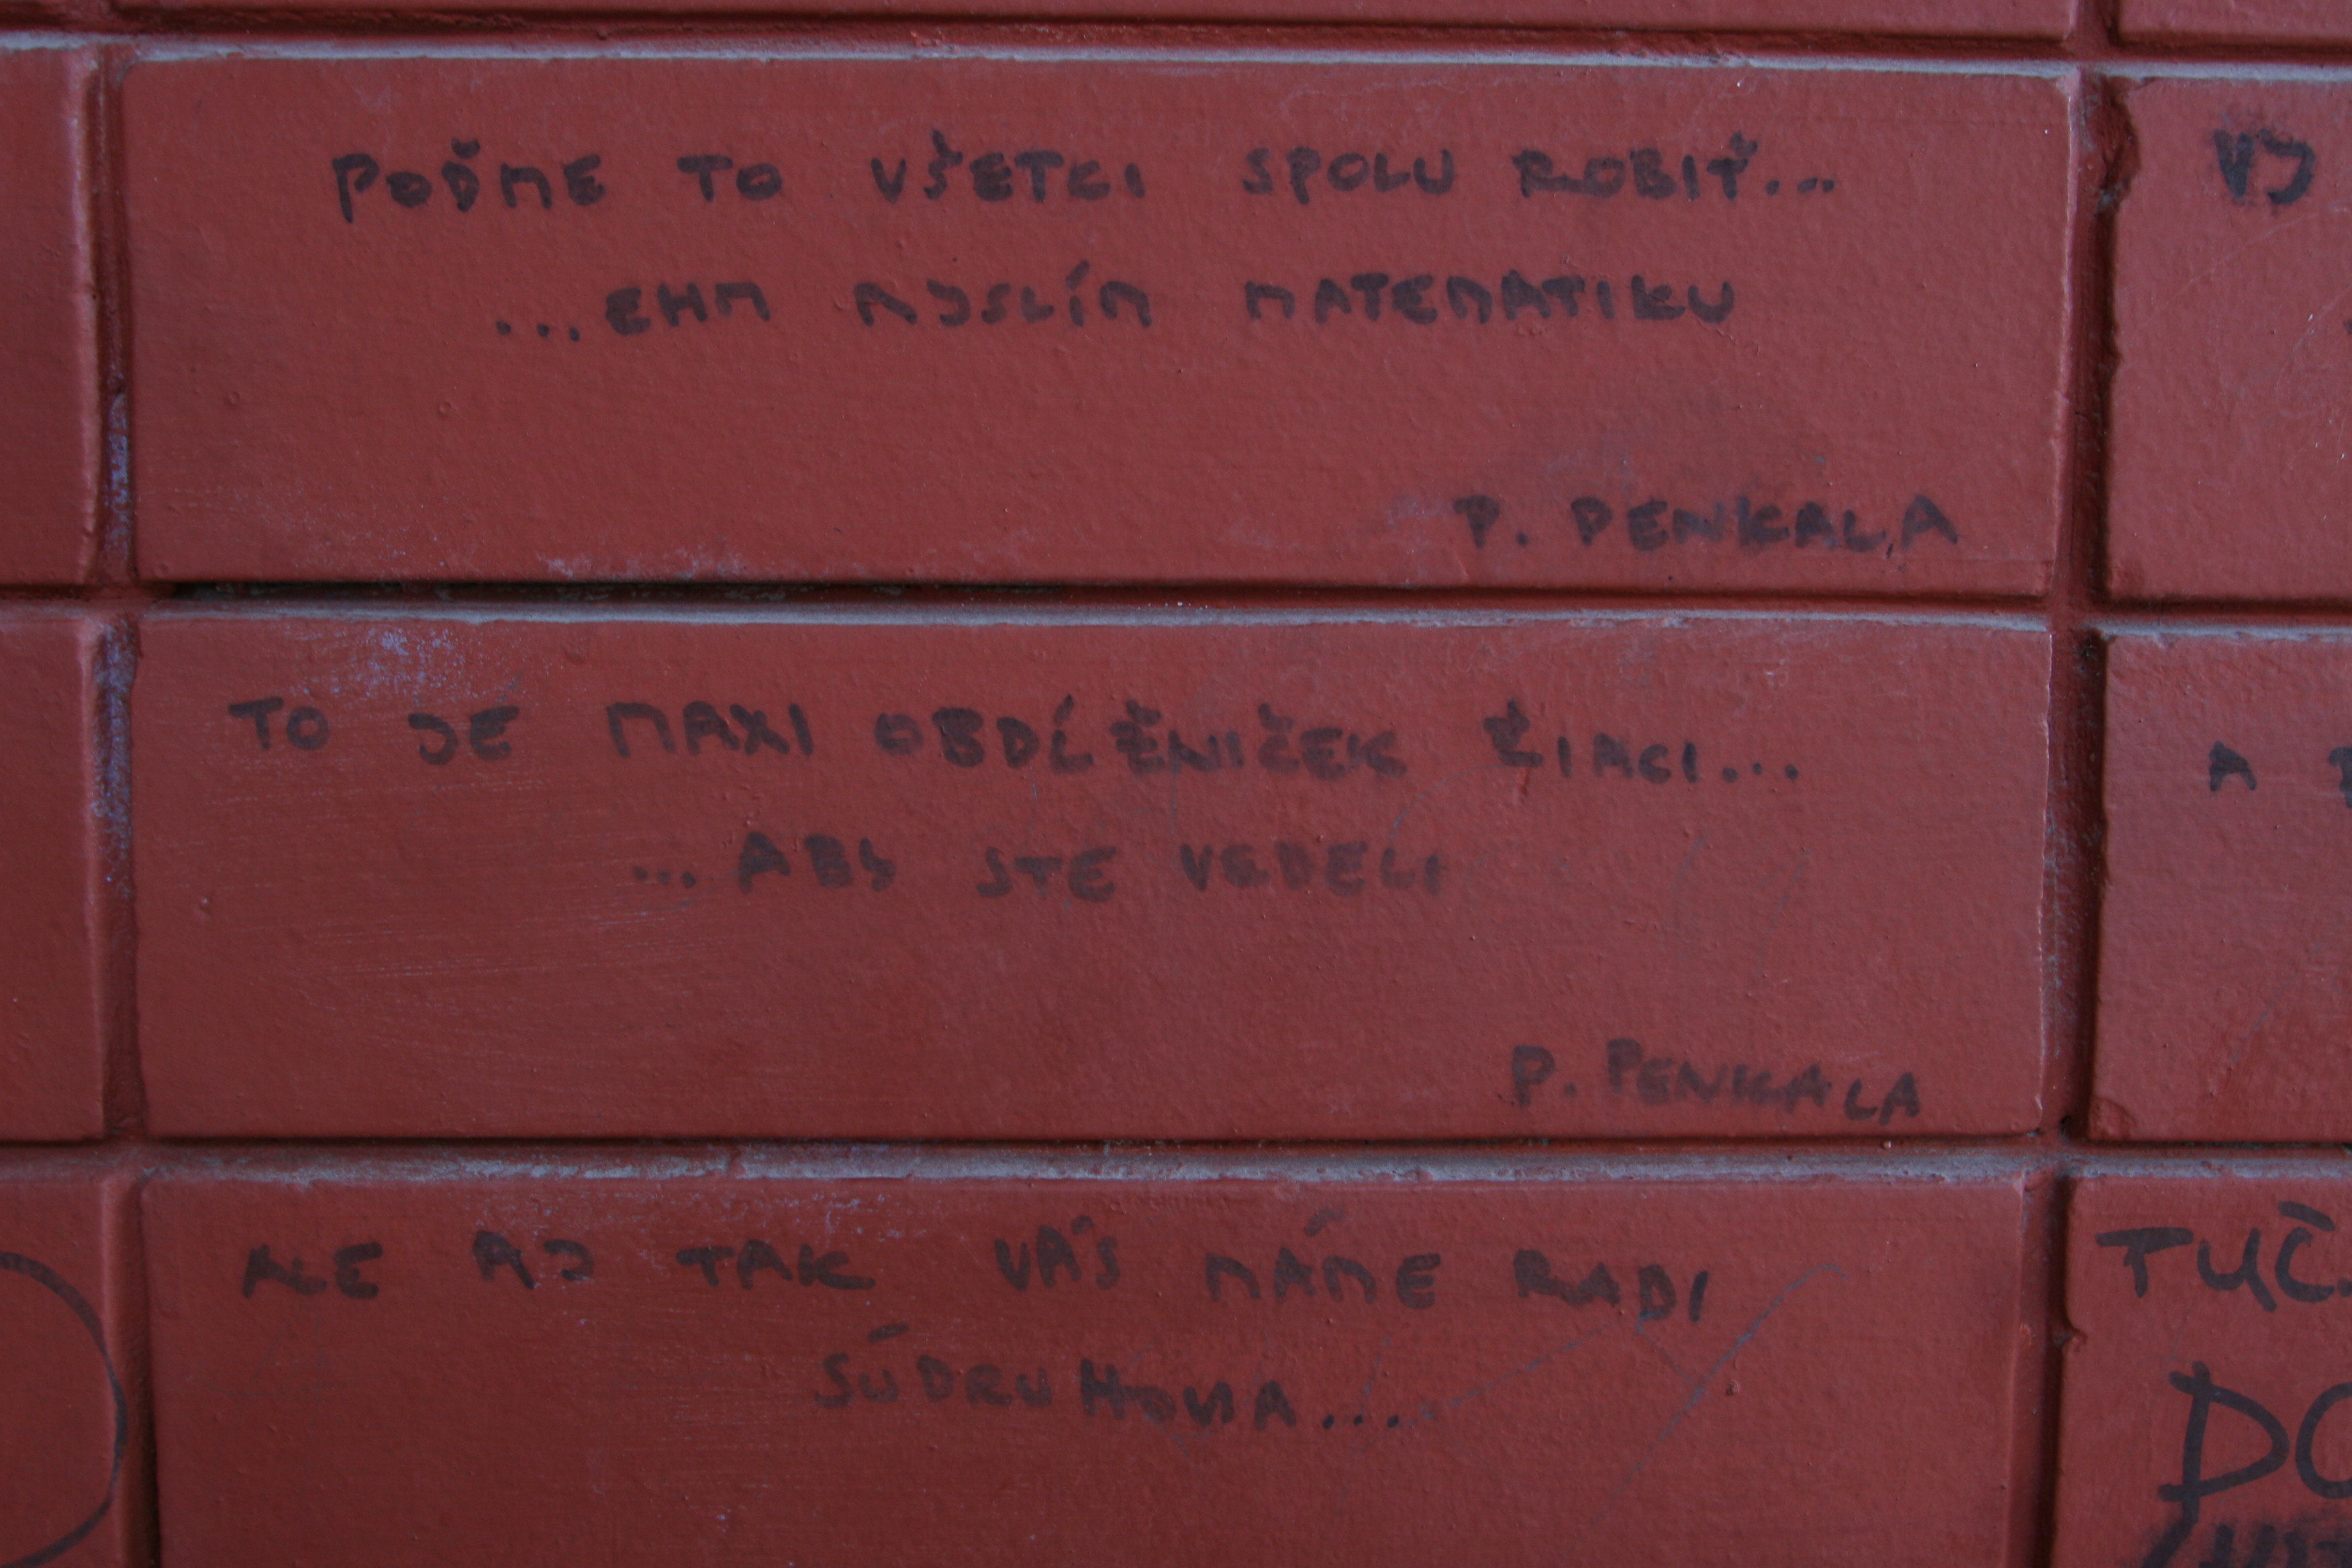 POĎME TO VŠETCI SPOLU ROBIŤ...
...EHM MYSLÍM MATEMATIKU
P. PENKALA
TO JE MAXI OBDĹŽNIČEK ŽIACI...
...ABY STE VEDELI
P. PENKALA
ALE AJ TAK VÁS MÁME RADI
SÚDRUHOVIA...
VY
A
TUČ
DO